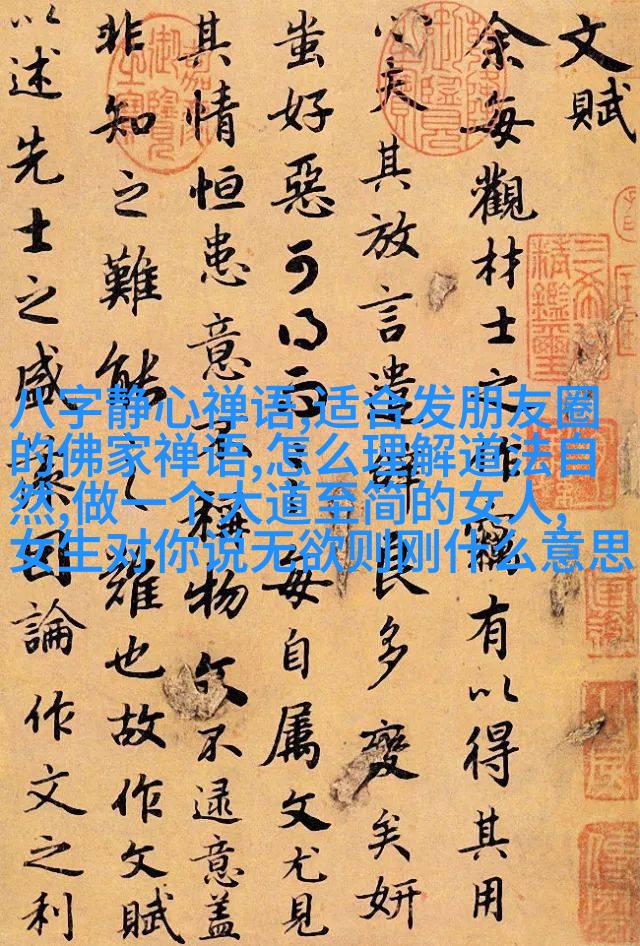 文賦
余每觀材士之作竊有以得其用
心夫其放言遣辭良多變矣妍
蚩好惡可得而言每自属文尤見
其情恒患意不稱物文不逮意盖
非知之難能之難也故作文賦
以述先士之盛藻因論作文之利
八字静心禅语,适合发朋友圈
的佛家禅语,怎么理解道法自
然,做一个大道至简的女人,
女生对你说无欲则刚什么意思